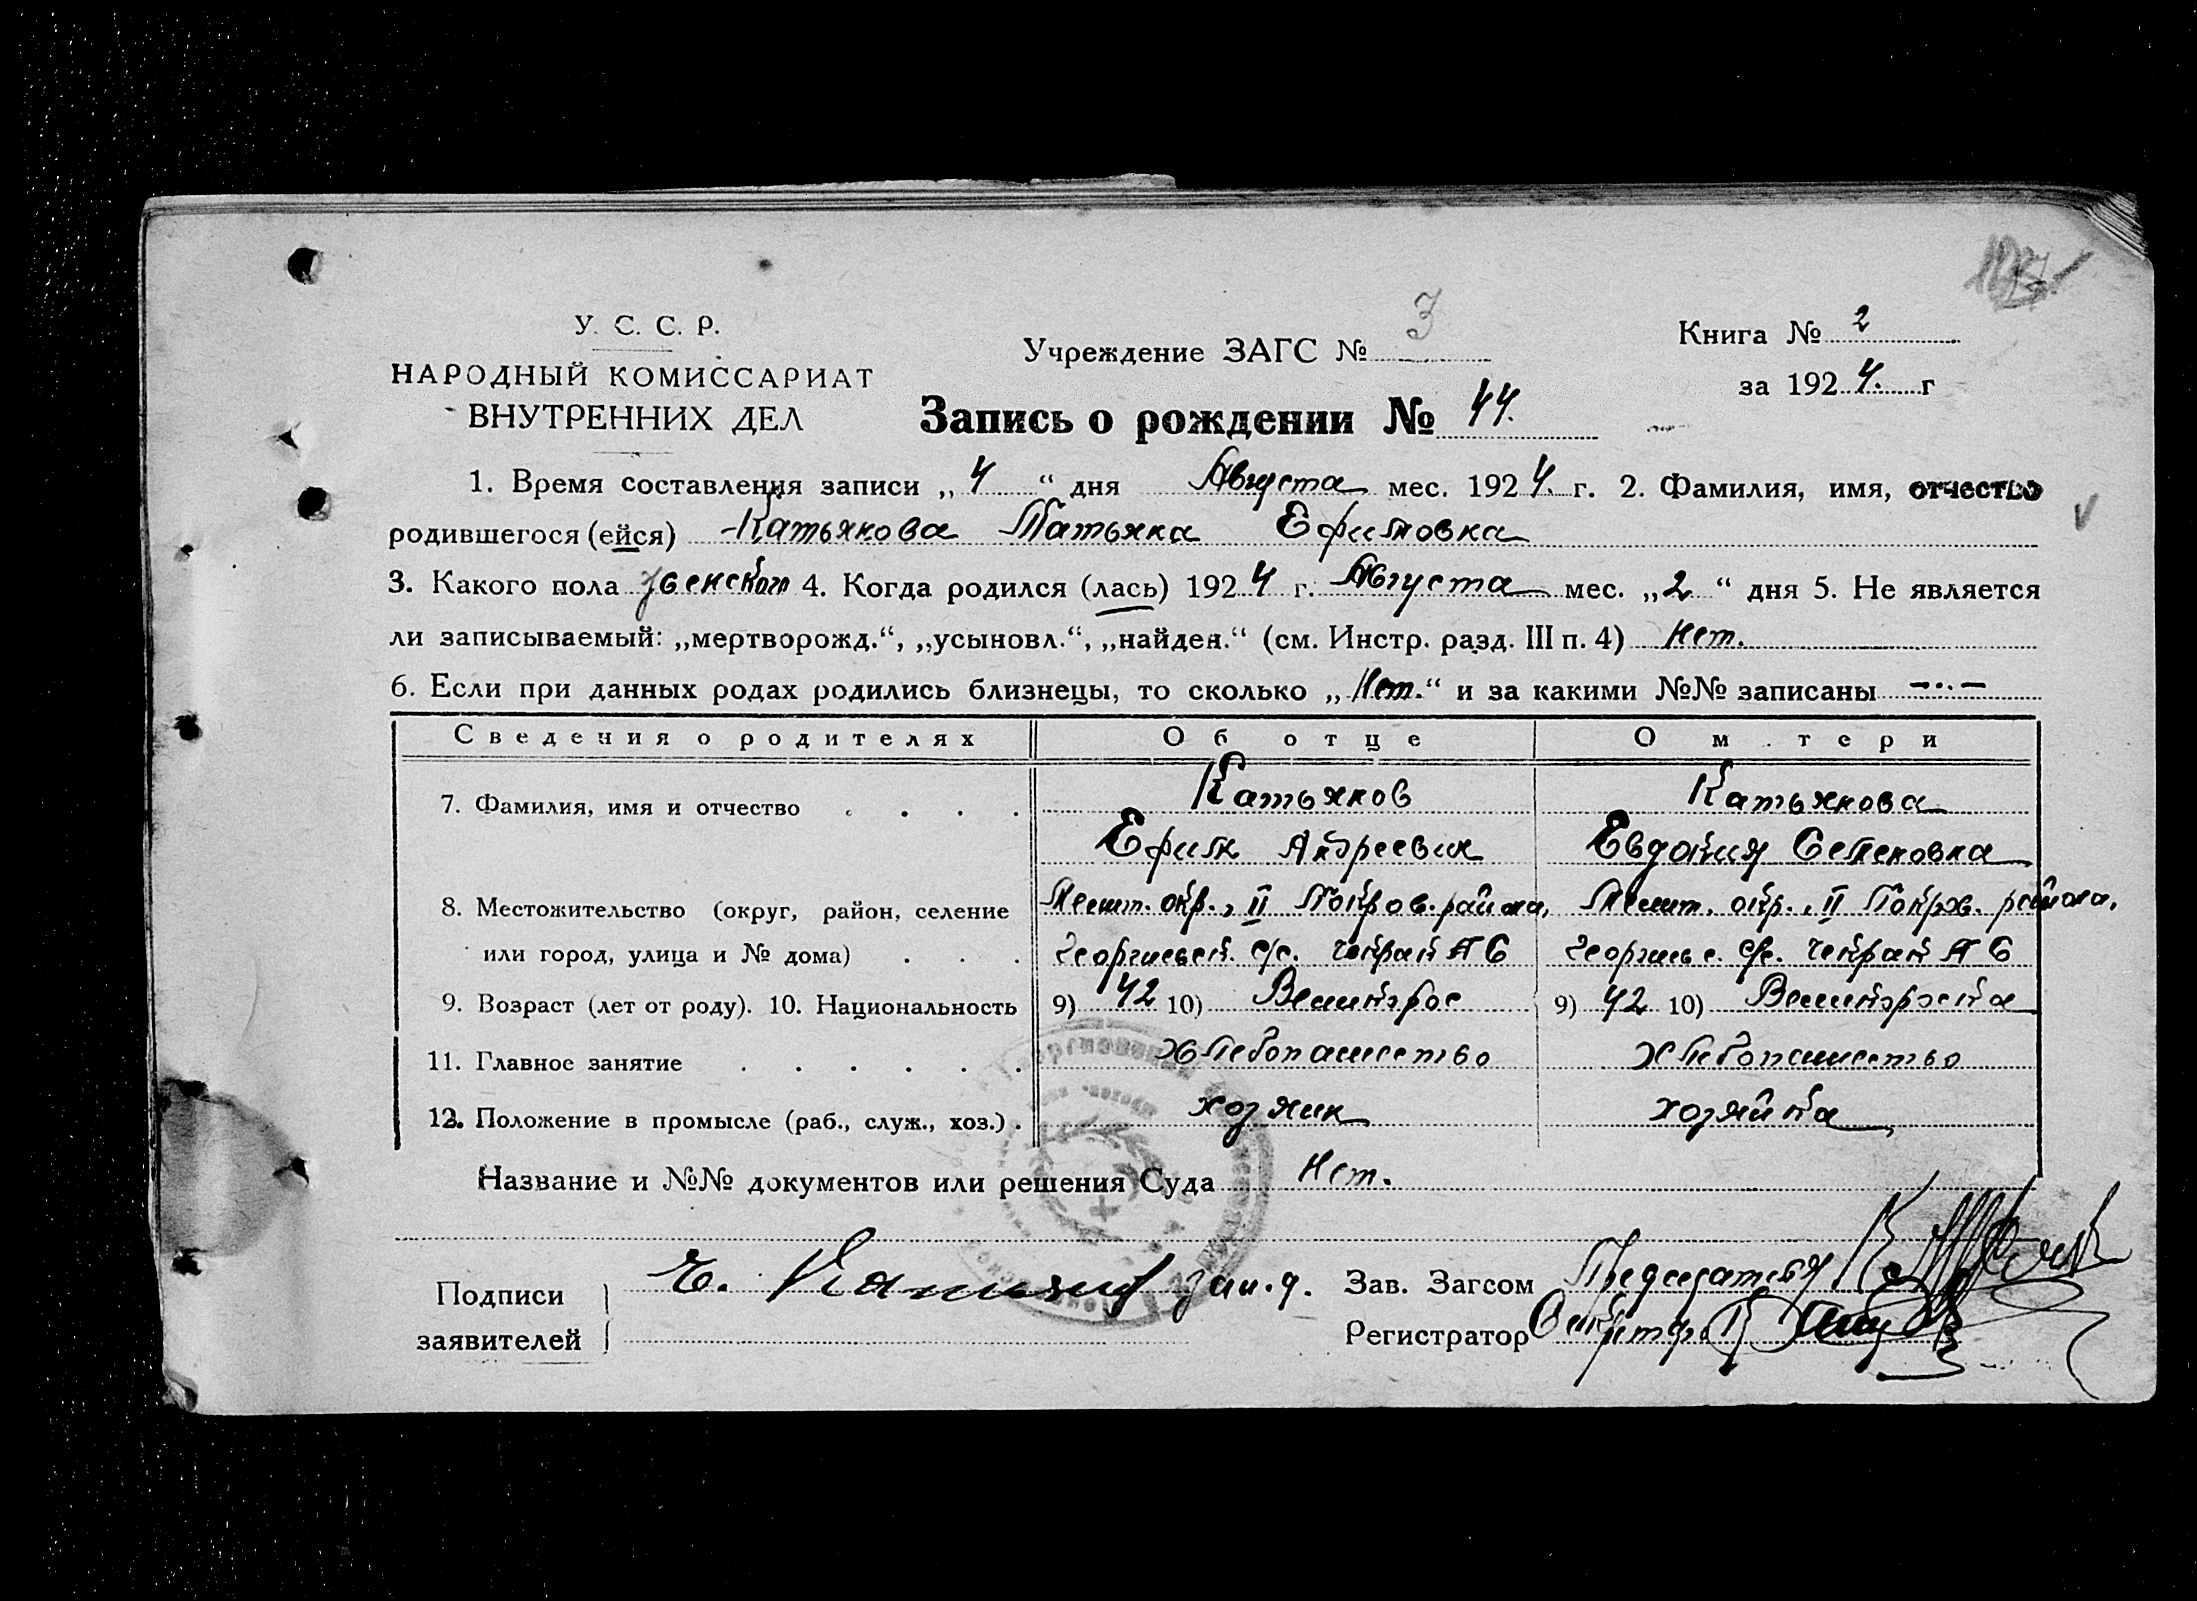 У. С. С. Р.
НАРОДНЫЙ КОМИССАРИАТ
ВНУТРЕННИХ ДЕЛ
Учреждение ЗАГС № 3
Книга № 2
за 1924. г
Запись о рождении № 44.
1. Время составления записи „4“ дня Августа мес. 1924. г. 2. Фамилия, имя, отчество
родившегося (ейся) Катькова Татьяна Ефимовна
3. Какого пола женского 4. Когда родился (лась) 1924 г. Августа мес. „2“ дня 5. Не является
ли записываемый: „мертворожд.“, „усыновл.“, „найден.“ (см. Инстр. разд. III п. 4) Нет.
6. Если при данных родах родились близнецы, то сколько „Нет.“ и за какими №№ записаны —··—
Сведения о родителях Об отце О м тери
7. Фамилия, имя и отчество Катьяков Катьякова
Ефим Андреевич Евдокия Семеновна
8. Местожительство (округ, район, селение окр., II Покров. района, окр., II Покров. района,
или город, улица и № дома) Георгиевск. с/с. Георгиевс. с/с.
9. Возраст (лет от роду). 10. Национальность 9) 42 10) Великорос 9) 42 10) Великороска
11. Главное занятие Хлебопашество Хлебопашество
12. Положение в промысле (раб., служ., хоз.) хозяин хозяйка
Название и №№ документов или решения Суда Нет.
Подписи
заявителей
Е.
Зав. Загсом Председатель
Регистратор Секретарь